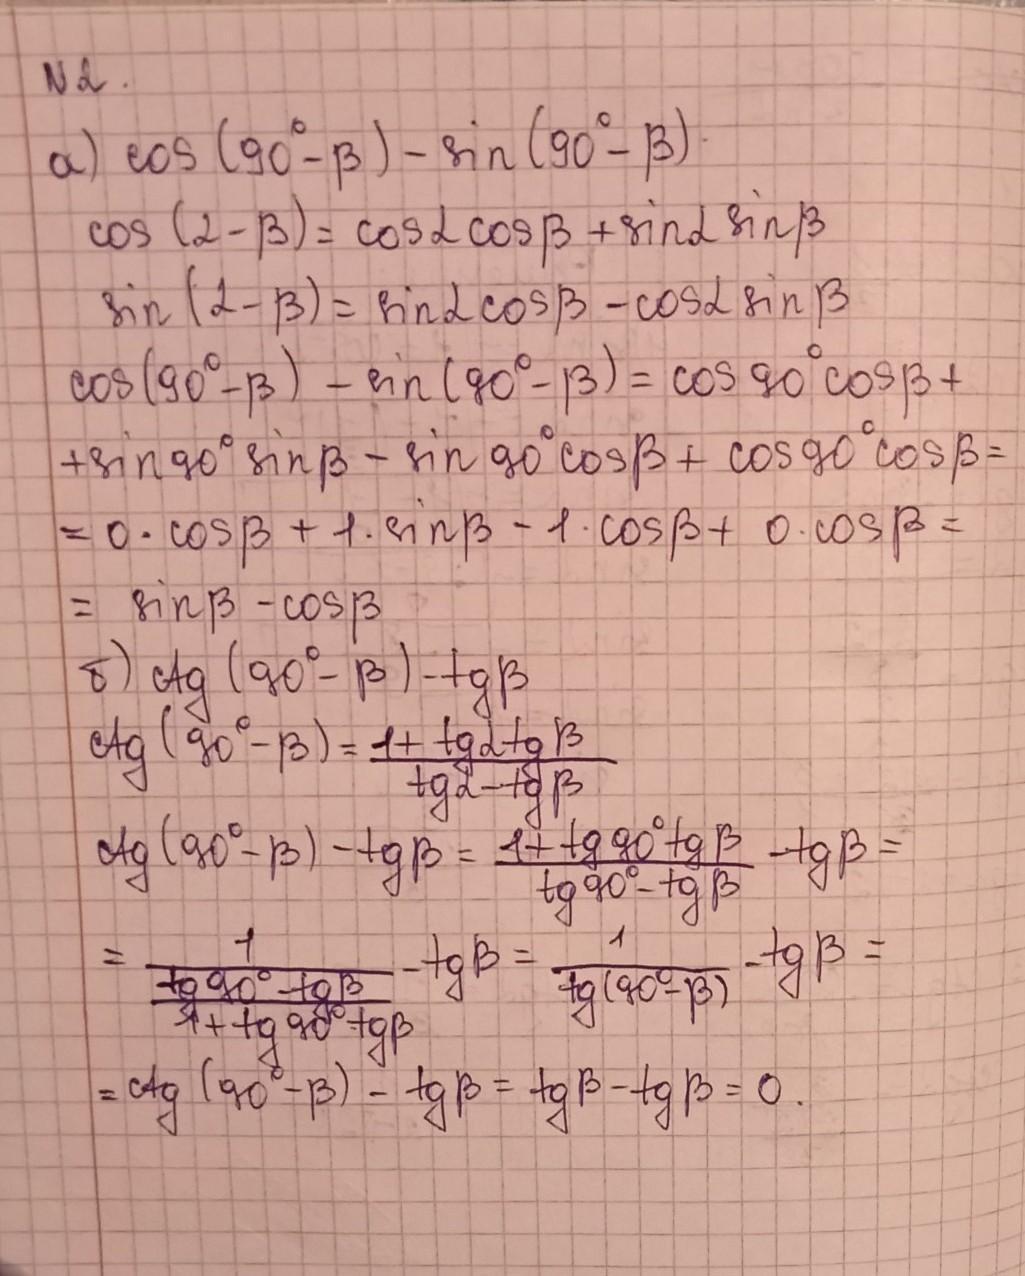 N2.
а) cos (90° - β) - sin (90° - β).
cos (α - β) = cosα cosβ + sinα sinβ
sin (α - β) = sinα cosβ - cosα sinβ
cos (90° - β) - sin (90° - β) = cos 90° cosβ +
+ sin 90° sinβ - sin 90° cosβ + cos 90° cosβ =
= 0 · cosβ + 1 · sinβ - 1 · cosβ + 0 · cosβ =
= sinβ - cosβ
б) ctg (90° - β) - tgβ
ctg (90° - β) = (1 + tgα tgβ) / (tgα - tgβ)
ctg (90° - β) - tgβ = (1 + tg 90° tgβ) / (tg 90° - tgβ) - tgβ =
= 1 / ((tg 90° - tgβ) / (1 + tg 90° tgβ)) - tgβ = 1 / tg (90° - β) - tgβ =
= ctg (90° - β) - tgβ = tgβ - tgβ = 0.